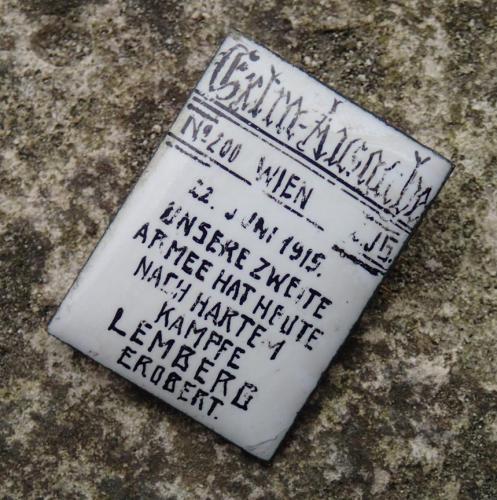 Extra-Ausgabe
No 200 WIEN 1915
22. JUNI 1915.
UNSERE ZWEITE
ARMEE HAT HEUTE
NACH HARTEM
KAMPFE
LEMBERG
EROBERT.